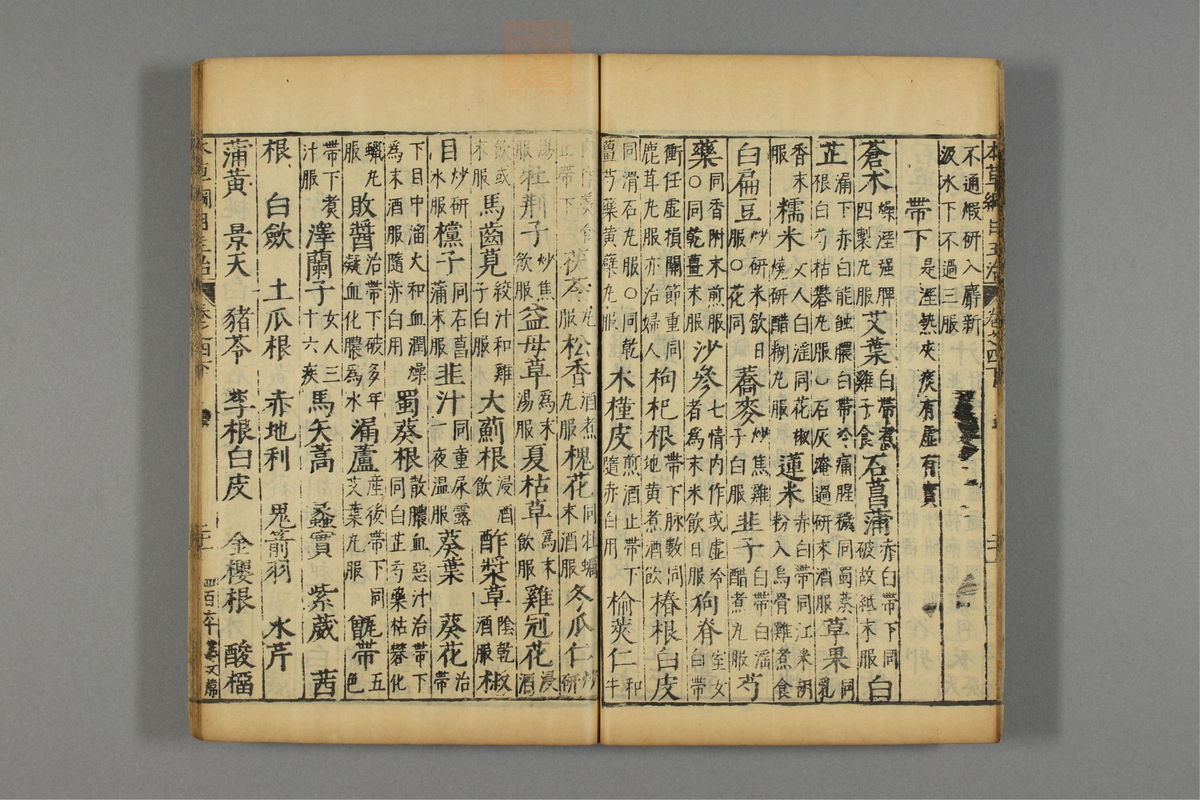 不通煅研入麝新汲水下不過三服
帶下 是溼熱夾痰有虛有實
蒼朮 燥溼强脾四製丸服 艾葉 白帶煮雞子食 石菖蒲 赤白帶下同破故紙末服 白
芷 漏下赤白能蝕膿白帶冷痛腥穢同蜀葵根白芍枯礬丸服○石灰淹過研末酒服 草果 同乳
香末服 糯米 女人白淫同花椒燒研醋糊丸服 蓮米 赤白帶同江米胡粉入烏骨雞煮食
白扁豆 炒研米飲日服○花同 蕎麥 炒焦雞子白服 韭子 白帶白淫醋煮丸服 芍
藥 同香附末煎服○同乾薑末服 沙參 七情內作或虛冷者為末米飲日服 狗脊 室女白帶
衝任虛損關節重同鹿茸丸服亦治婦人 枸杞根 帶下脉數同地黃煮酒飲 椿根白皮
同滑石丸服○同乾薑芍藥黃蘗丸服 木槿皮 煎酒止帶下隨赤白用 榆莢仁 和牛
肉作羹食止帶下 茯苓 丸服 松香 酒煮丸服 槐花 同牡蠣末酒服 冬瓜仁 炒研
湯服 牡荆子 炒焦飲服 益母草 為末湯服 夏枯草 為末飲服 雞冠花 浸酒
飲或末服 馬齒莧 絞汁和雞子白服 大薊根 浸酒飲 酢漿草 陰乾酒服 椒
目 炒研水服 欓子 同石菖蒲末服 韭汁 同童尿露一夜温服 葵葉 葵花 治帶
下目中溜火和血潤燥為末酒服隨赤白用 蜀葵根 散膿血惡汁治帶下同白芷芍藥枯礬化
蠟丸服 敗醬 治帶下破多年凝血化膿為水 漏蘆 產後帶下同艾葉丸服 甑帶 五色
帶下煮汁服 澤蘭子 女人三十六疾 馬矢蒿 蠡實 紫葳 茜
根 白斂 土瓜根 赤地利 鬼箭羽 水芹
蒲黃 景天 豬苓 李根白皮 金櫻根 酸榴